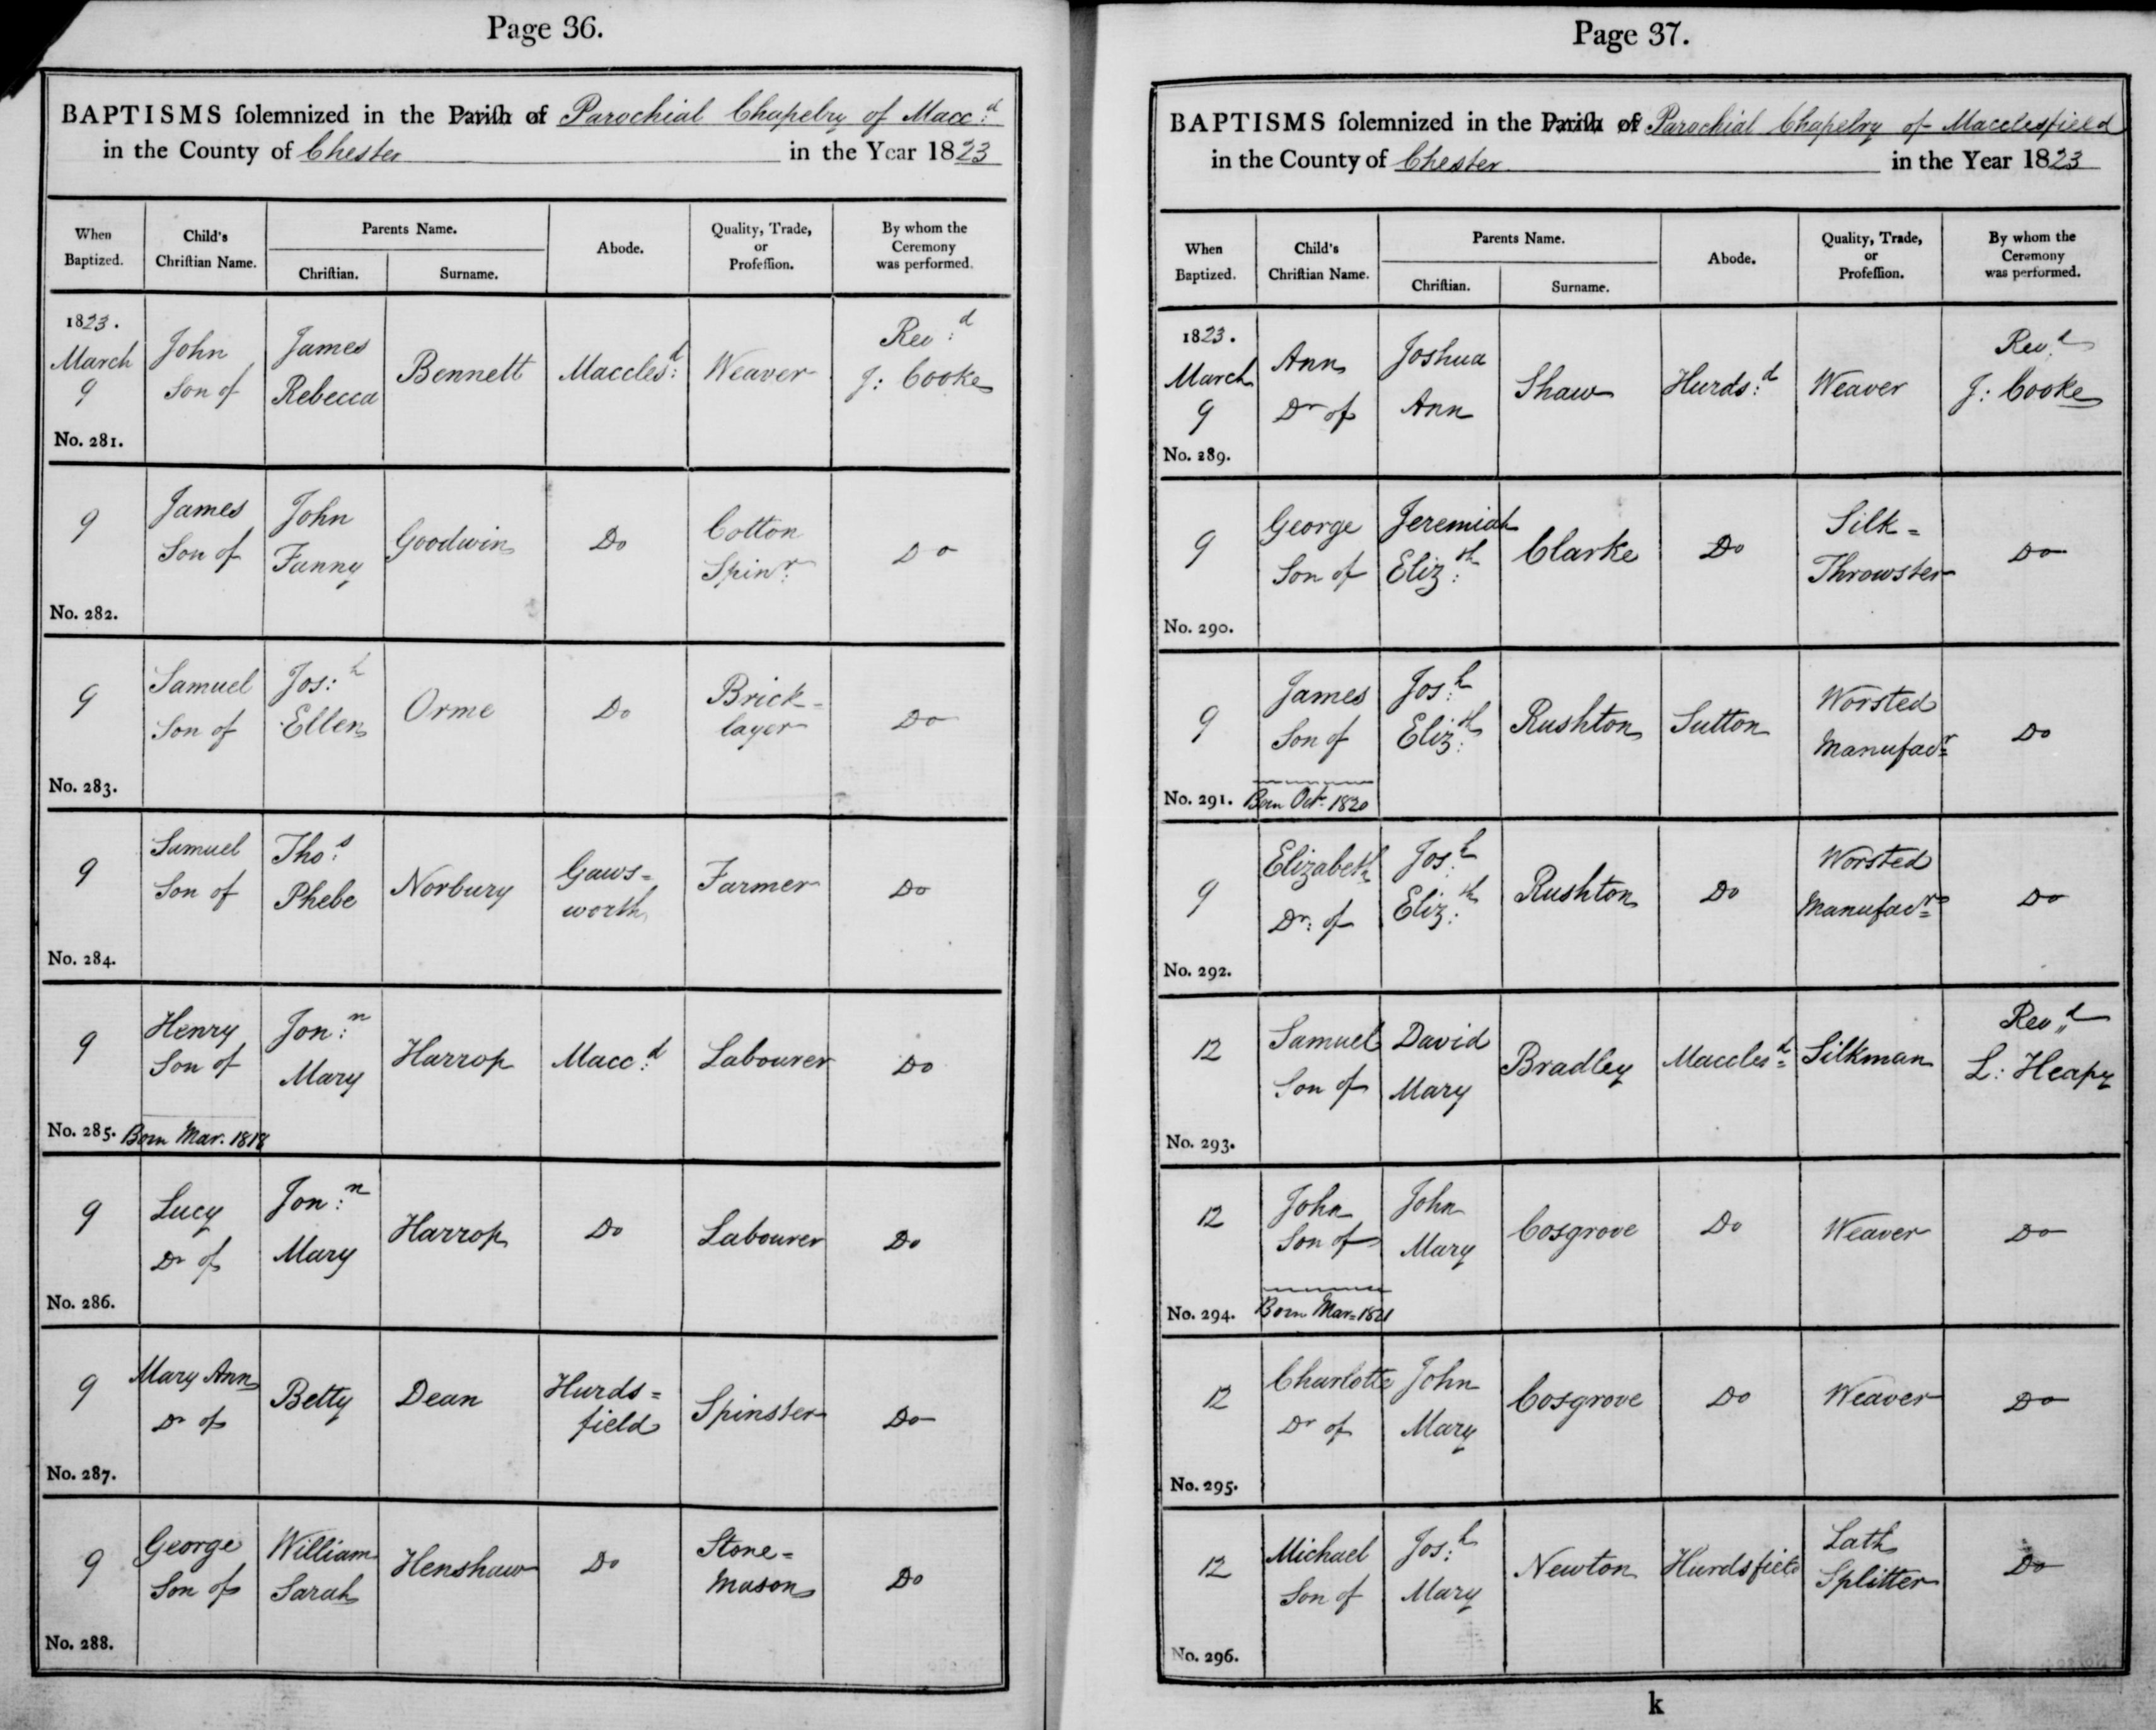 Page 36.
BAPTISMS solemnized in the Parish of Parochial Chapelry of Macc:d
in the County of Chester in the Year 1823
When Baptized.
Child's Christian Name.
Parents Name.
Christian.
Surname.
Abode.
Quality, Trade, or Profession.
By whom the Ceremony was performed.
1823.
March
9
No. 281.
John
Son of
James
Rebecca
Bennett
Maccles:d
Weaver
Rev:d
J: Cooke
9
No. 282.
James
Son of
John
Fanny
Goodwin
Do
Cotton
Spinr:
Do
9
No. 283.
Samuel
Son of
Jos:h
Ellen
Orme
Do
Brick-
layer
Do
9
No. 284.
Samuel
Son of
Tho:s
Phebe
Norbury
Gaws=
worth
Farmer
Do
9
No. 285.
Henry
Son of
Born Mar. 1818
Jon:n
Mary
Harrop
Macc:d
Labourer
Do
9
No. 286.
Lucy
Dr of
Jon:n
Mary
Harrop
Do
Labourer
Do
9
No. 287.
Mary Ann
Dr of
Betty
Dean
Hurds=
field
Spinster
Do
9
No. 288.
George
Son of
William
Sarah
Henshaw
Do
Stone=
Mason
Do
Page 37.
BAPTISMS solemnized in the Parish of Parochial Chapelry of Macclesfield
in the County of Chester in the Year 1823
When Baptized.
Child's Christian Name.
Parents Name.
Christian.
Surname.
Abode.
Quality, Trade, or Profession.
By whom the Ceremony was performed.
1823.
March
9
No. 289.
Ann
Dr of
Joshua
Ann
Shaw
Hurds:d
Weaver
Rev:d
J: Cooke
9
No. 290.
George
Son of
Jeremiah
Eliz:th
Clarke
Do
Silk=
Throwster
Do
9
No. 291.
James
Son of
Born Octr 1820
Jos:h
Eliz:th
Rushton
Sutton
Worsted
Manufacr
Do
9
No. 292.
Elizabeth
Dr: of
Jos:h
Eliz:th
Rushton
Do
Worsted
Manufacr
Do
12
No. 293.
Samuel
Son of
David
Mary
Bradley
Macclesd
Silkman
Revd
L: Heapy
12
No. 294.
John
Son of
Born Mar=1821
John
Mary
Cosgrove
Do
Weaver
Do
12
No. 295.
Charlotte
Dr of
John
Mary
Cosgrove
Do
Weaver
Do
12
No. 296.
Michael
Son of
Jos:h
Mary
Newton
Hurdsfield
Lath
Splitter
Do
k